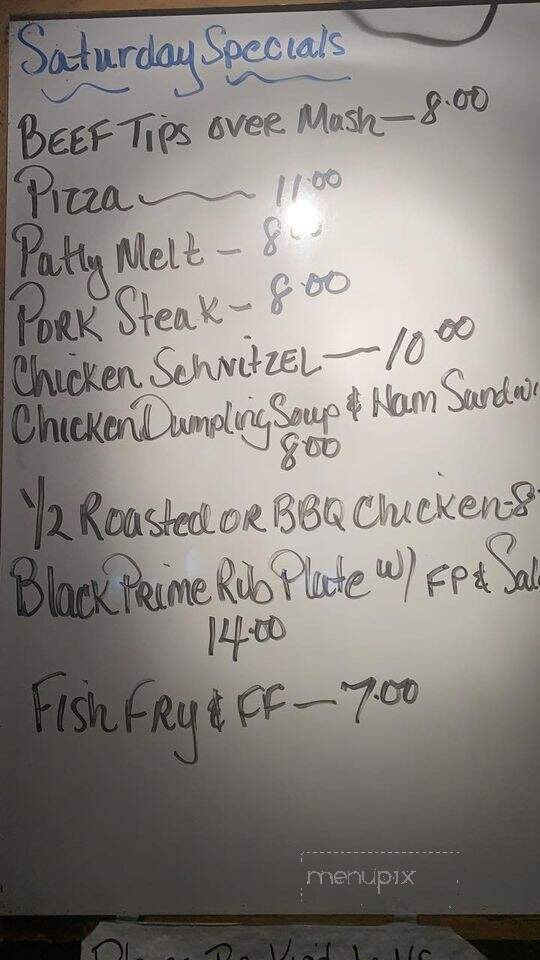 Saturday Specials
BEEF Tips over Mash - 8.00
Pizza - 11.00
Patty Melt - 8.00
PORK Steak - 8.00
Chicken SchnitzEL - 10.00
Chicken Dumpling Soup & Ham Sandwi
8.00
1/2 Roasted OR BBQ Chicken - 8
Black Prime Rib Plate W/ FP & Sal
14.00
Fish Fry & FF - 7.00
menupix